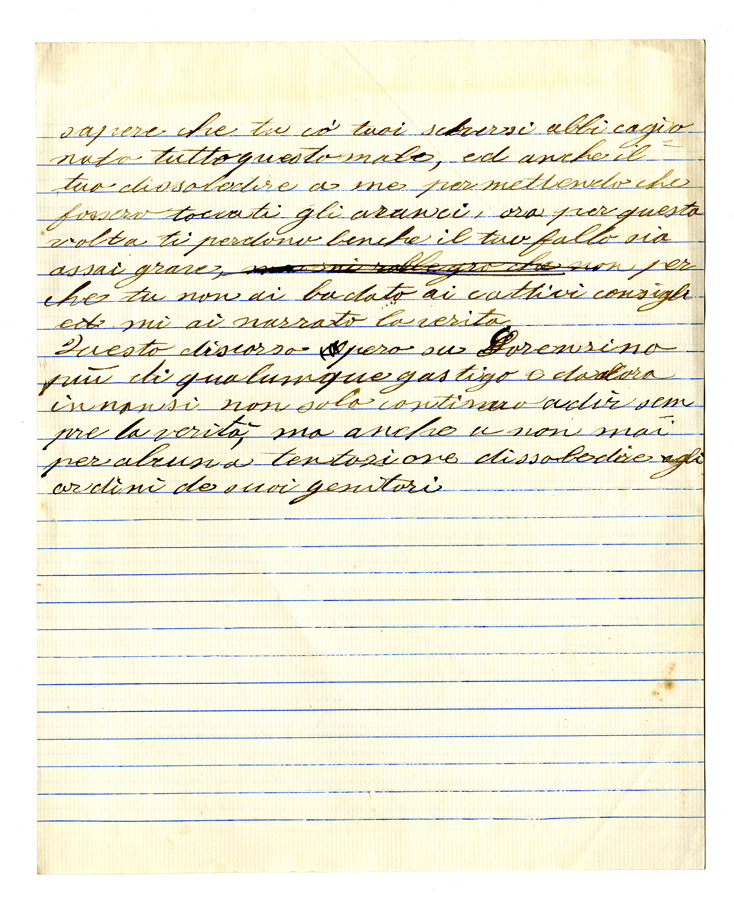 sapere che tu có tuoi scherzi abbi cagio
nato tutto questo male, ed anche il
tuo dissobedire a me permettendo che
fossero toccati gli aranci, ora per questa
volta ti perdono benche il tuo fallo sia
assai grave, ma mi rallegro che non per
che tu non ai badato ai cattivi consigli
ed mi ai narrato la verita
Questo discorso opero su Lorenzino
più di qualunque gastigo e da alora
innansi non solo continuo a dir sem
pre la verità, ma anche a non mai
per alcuna tentazione dissobedire agli
ordini de suoi genitori